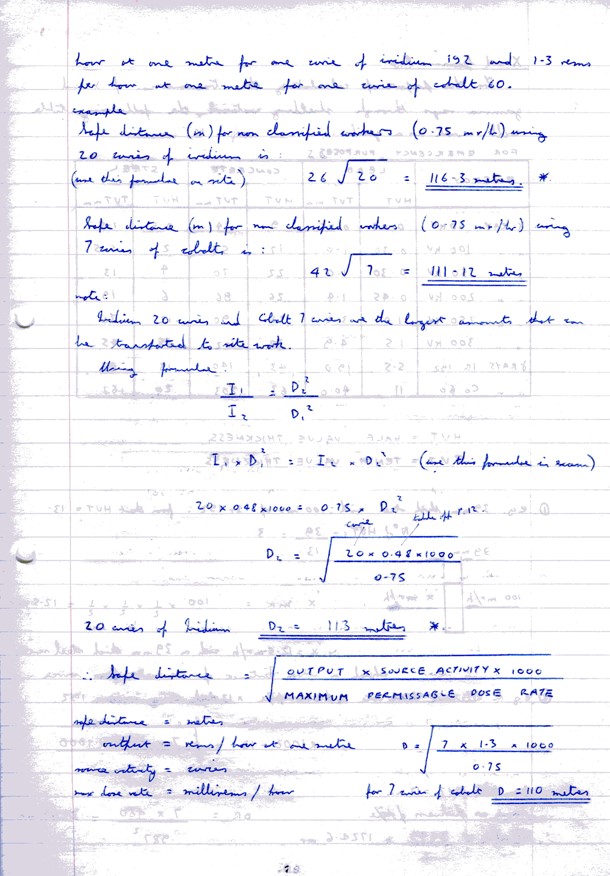 hour at one metre for one curie of iridium 192 and 1·3 rems
per hour at one metre for one curie of cobalt 60.
example
Safe distance (m) for non classified workers (0·75 mr/h) using
20 curies of iridium is :
(use this formulae on site) 26 √20 = 116·3 metres. *
Safe distance (m) for non classified workers (0·75 mr/hr) using
7 curies of cobalt is :
42 √7 = 111·12 metres
note :
Iridium 20 curies and Cobalt 7 curies are the largest amounts that can
be transported to site work.
Using formulae.
I₁ / I₂ = D₂² / D₁²
I₁ × D₁² = I₂ × D₂² (use this formulae in exam)
20 × 0.48 × 1000 = 0·75 × D₂²
curie table P.12.
D₂ = √(20 × 0.48 × 1000 / 0·75)
20 curies of Iridium D₂ = 113 metres *.
∴ Safe distance = √(OUTPUT × SOURCE ACTIVITY × 1000 / MAXIMUM PERMISSABLE DOSE RATE)
safe distance = metres
output = rems / hour at one metre D = √(7 × 1·3 × 1000 / 0.75)
source activity = curies
max dose rate = millirems / hour for 7 curies of cobalt D = 110 metres